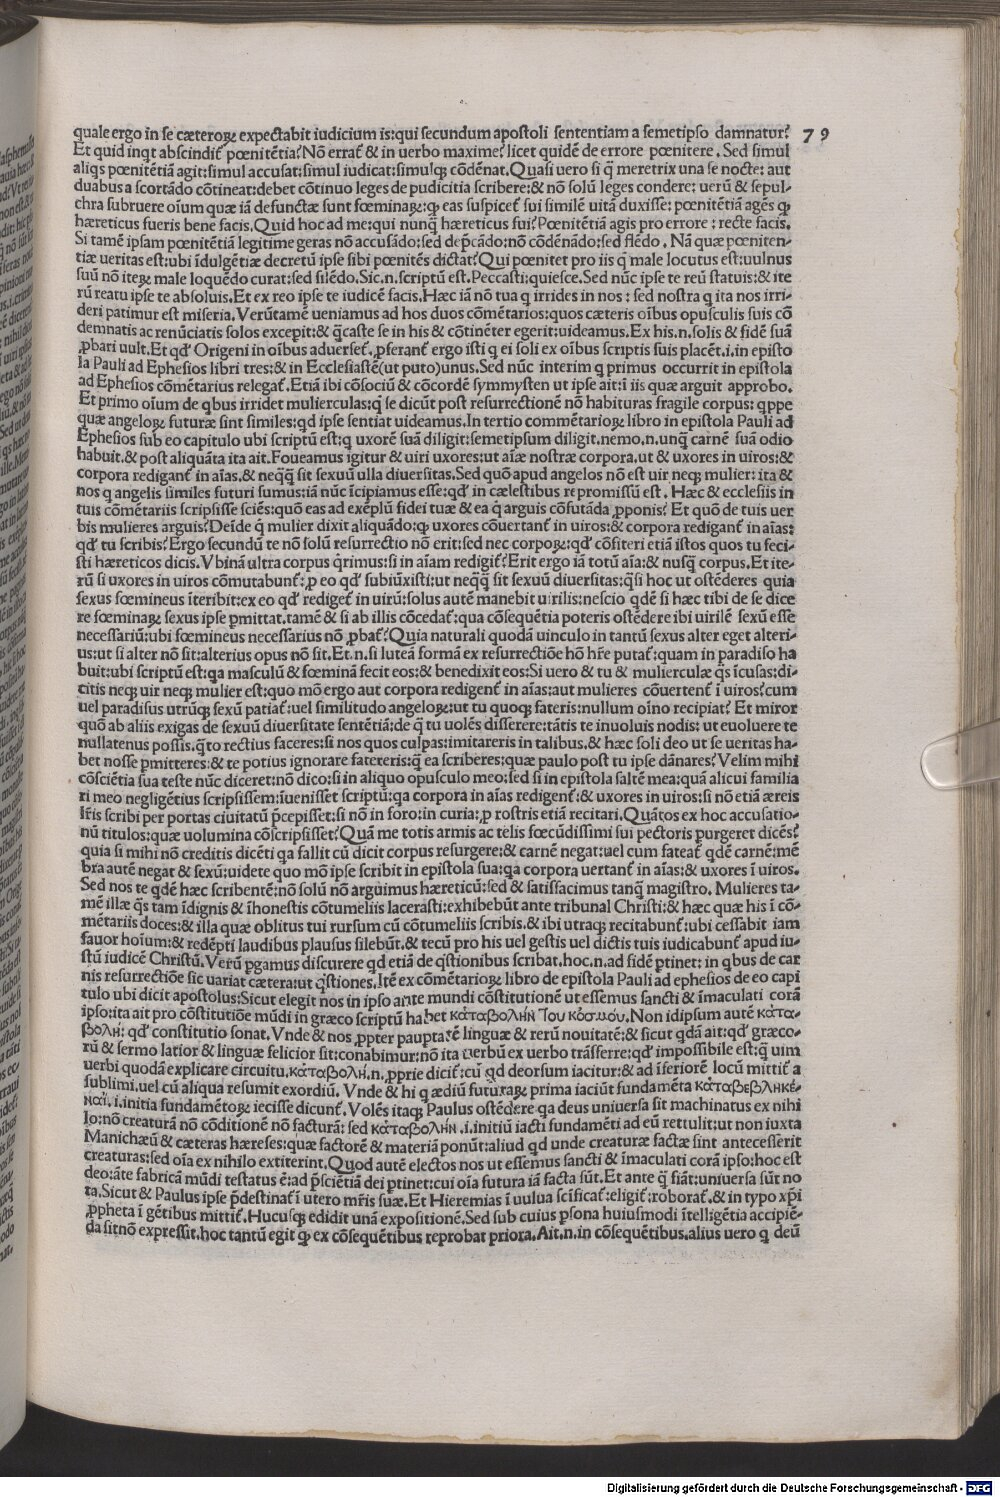 quale ergo in se cæteroꝝ expectabit iudicium is:qui secundum apostoli sententiam a semetipso damnatur? 79
Et quid inqt abscindit̃ pœnitẽtia? Nõ errat̃ & in uerbo maxime? licet quidẽ de errore pœnitere. Sed simul
aliqs pœnitẽtiã agit:simul accusat:simul iudicat:simulꝗ cõdẽnat. Quasi uero si q̃ meretrix una se nocte: aut
duabus a scortãdo cõtineat:debet cõtinuo leges de pudicitia scribere:& nõ solũ leges condere: uerũ & sepul-
chra subruere oĩum quæ iã defunctæ sunt fœminaꝝ:ꝙ eas suspicet̃ sui similẽ uitã duxisse: pœnitẽtiã agẽs ꝙ
hæreticus fueris bene facis. Quid hoc ad me:qui nunq̃ hæreticus fui? Pœnitẽtiã agis pro errore : recte facis.
Si tamẽ ipsam pœnitẽtiã legitime geras nõ accusãdo:sed dep̃cãdo:nõ cõdẽnãdo:sed flẽdo. Nã quæ pœniten-
tiæ ueritas est:ubi ĩdulgẽtiæ decretũ ipse sibi pœnitẽs dictat? Qui pœnitet pro iis q̃ male locutus est:uulnus
suũ nõ iteꝝ male loquẽdo curat:sed silẽdo. Sic.n.scriptũ est. Peccasti:quiesce. Sed nũc ipse te reũ statuis:& ite
rũ reatu ipse te absoluis. Et ex reo ipse te iudicẽ facis. Hæc iã nõ tua q irrides in nos : sed nostra q ita nos irri-
deri patimur est miseria. Verũtamẽ ueniamus ad hos duos cõmẽtarios:quos cæteris oĩbus opusculis suis cõ
demnatis ac renũciatis solos excepit:& q̃caste se in his & cõtinẽter egerit:uideamus. Ex his.n.solis & fidẽ suã
ꝓbari uult. Et qđ Origeni in oĩbus aduerset̃.ꝓferant̃ ergo isti q ei soli ex oĩbus scriptis suis placẽt.i.in episto
la Pauli ad Ephesios libri tres:& in Ecclesiastẽ(ut puto)unus. Sed nũc interim q primus occurrit in epistola
ad Ephesios cõmẽtarius relegat̃. Etiã ibi cõsociũ & cõcordẽ symmysten ut ipse ait:i iis quæ arguit approbo.
Et primo oĩum de qbus irridet mulierculas:q̃ se dicũt post resurrectionẽ nõ habituras fragile corpus: qppe
quæ angeloꝝ futuræ sint similes:qd ipse sentiat uideamus. In tertio commẽtarioꝝ libro in epistola Pauli ad
Ephesios sub eo capitulo ubi scriptũ est:q uxorẽ suã diligit:semetipsum diligit.nemo.n.unq̃ carnẽ suã odio
habuit.& post aliquãta ita ait. Foueamus igitur & uiri uxores:ut aĩæ nostræ corpora.ut & uxores in uiros:&
corpora redigant̃ in aĩas.& neq̃q̃ sit sexuũ ulla diuersitas. Sed quõ apud angelos nõ est uir neqꝫ mulier: ita &
nos q angelis similes futuri sumus:iã nũc ĩcipiamus esse:qđ in cælestibus repromissũ est . Hæc & ecclesiis in
tuis cõmẽtariis scripsisse sciẽs:quõ eas ad exẽplũ fidei tuæ & ea q̃ arguis cõfutãda ꝓponis? Et quõ de tuis uer
bis mulieres arguis? Deĩde q̃ mulier dixit aliquãdo:ꝙ uxores cõuertant̃ in uiros:& corpora redigant̃ in aĩas:
qđ tu scribis? Ergo secundũ te nõ solũ resurrectio nõ erit:sed nec corpoꝝ:qđ cõfiteri etiã istos quos tu feci-
sti hæreticos dicis. Vbinã ultra corpus q̃rimus:si in aĩam redigit̃? Erit ergo iã totũ aĩa:& nusq̃ corpus. Et ite-
rũ si uxores in uiros cõmutabunt̃: ꝓ eo qđ subiũxisti:ut neq̃q̃ sit sexuũ diuersitas:q̃si hoc ut ostẽderes quia
sexus fœmineus ĩteribit:ex eo qđ rediget̃ in uirũ:solus autẽ manebit uirilis:nescio qdẽ si hæc tibi de se dice
re fœminaꝝ sexus ipse ꝑmittat.tamẽ & si ab illis cõcedat̃:qua cõsequẽtia poteris ostẽdere ibi uirilẽ sexũ esse
necessariũ:ubi fœmineus necessarius nõ ꝓbat̃? Quia naturali quodã uinculo in tantũ sexus alter eget alteri-
us:ut si alter nõ sit:alterius opus nõ sit. Et.n.si luteã formã ex resurrectiõe hõ hr̃e putat̃:quam in paradiso ha
buit:ubi scriptũ est:qa masculũ & fœminã fecit eos:& benedixit eos:Si uero & tu & mulierculæ q̃s ĩcusas:di-
citis neqꝫ uir neqꝫ mulier est:quo mõ ergo aut corpora redigent̃ in aĩas:aut mulieres cõuertent̃ ĩ uiros?cum
uel paradisus utrũqꝫ sexũ patiat̃:uel similitudo angeloꝝ:ut tu quoqꝫ fateris:nullum oĩno recipiat? Et miror
quõ ab aliis exigas de sexuũ diuersitate sentẽtiã:de q̃ tu uolẽs disserere:tãtis te inuoluis nodis: ut euoluere te
nullatenus possis.q̃to rectius faceres:si nos quos culpas:imitareris in talibus.& hæc soli deo ut se ueritas ha-
bet nosse ꝑmitteres:& te potius ignorare fatereris:q̃ ea scriberes:quæ paulo post tu ipse dãnares? Velim mihi
cõsciẽtia sua teste nũc diceret:nõ dico:si in aliquo opusculo meo:sed si in epistola saltẽ mea:quã alicui familia
ri meo negligẽtius scripsissem:ĩuenisset scriptũ:qa corpora in aĩas redigent̃:& uxores in uiros:si nõ etiã æreis
lr̃is scribi per portas ciuitatũ p̃cepisset:si nõ in foro:in curia:ꝓ rostris etiã recitari. Quãtos ex hoc accusatio-
nũ titulos:quæ uolumina cõscripsisset? Quã me totis armis ac telis fœcũdissimi sui pectoris purgeret dicẽs?
quia si mihi nõ creditis dicẽti qa fallit cũ dicit corpus resurgere:& carnẽ negat:uel cum fateat̃ qdẽ carnẽ:mẽ
bra autẽ negat & sexũ:uidete quo mõ ipse scribit in epistola sua:qa corpora uertant̃ in aĩas:& uxores ĩ uiros.
Sed nos te qdẽ hæc scribentẽ:nõ solũ nõ arguimus hæreticũ:sed & satisfacimus tanq̃ magistro. Mulieres ta-
mẽ illæ q̃s tam ĩdignis & ĩhonestis cõtumeliis lacerasti:exhibebũt ante tribunal Christi:& hæc quæ his ĩ cõ-
mẽtariis doces:& illa quæ oblitus tui rursum cũ cõtumeliis scribis.& ibi utraqꝫ recitabunt̃:ubi cessabit iam
fauor hoĩum:& redẽpti laudibus plausus silebũt.& tecũ pro his uel gestis uel dictis tuis iudicabunt̃ apud iu-
stũ iudicẽ Christũ. Verũ ꝑgamus discurere qd etiã de q̃stionibus scribat.hoc.n.ad fidẽ ꝑtinet: in qbus de car
nis resurrectiõe sic uariat cætera:ut q̃stiones. Itẽ ex cõmẽtarioꝝ libro de epistola Pauli ad ephesios de eo capi
tulo ubi dicit apostolus:Sicut elegit nos in ipso ante mundi cõstitutionẽ ut essemus sancti & ĩmaculati corã
ipso:ita ait pro cõstitutiõe mũdi in græco scriptũ habet κᾳταβολὴν Του κόσμου. Non idipsum autẽ κᾳτα-
βολὴ: qđ constitutio sonat. Vnde & nos ꝓpter pauptatẽ linguæ & rerũ nouitatẽ:& sicut qdã ait:qđ græco-
rũ & sermo latior & linguæ felicior sit:conabimur:nõ ita uerbũ ex uerbo trãsferre:qđ impossibile est:q̃ uim
uerbi quodã explicare circuitu.κᾳταβολὴ.n.ꝓprie dicit̃:cũ qd deorsum iacitur:& ad ĩferiorẽ locũ mittit̃ a
sublimi.uel cũ aliqua resumit exordiũ. Vnde & hi q ædiũ futuraꝝ prima iaciũt fundamẽta κᾳταβεβληκέ-
ναι.i.initia fundamẽtoꝝ iecisse dicunt̃. Volẽs itaqꝫ Paulus ostẽdere qa deus uniuersa sit machinatus ex nihi
lo:nõ creaturã nõ cõditionẽ nõ facturã: sed κᾳταβολὴν .i.initiũ iacti fundamẽti ad eũ rettulit:ut non iuxta
Manichæũ & cæteras hæreses:quæ factorẽ & materiã ponũt:aliud qd unde creaturæ factæ sint antecesserit
creaturas:sed oĩa ex nihilo extiterint. Quod autẽ electos nos ut essemus sancti & ĩmaculati corã ipso:hoc est
deo:ãte fabricã mũdi testatus ẽ:ad p̃sciẽtiã dei ptinet:cui oĩa futura iã facta sũt. Et ante q̃ fiãt:uniuersa sũt no
ta. Sicut & Paulus ipse p̃destinat̃ ĩ utero mr̃is suæ. Et Hieremias ĩ uulua scĩficat̃:eligit̃:roborat̃.& in typo xp̃i
ꝓpheta ĩ gẽtibus mittit̃. Hucusqꝫ edidit unã expositionẽ. Sed sub cuius ꝑsona huiusmodi ĩtelligẽtia accipiẽ-
da sitnõ expressit.hoc tantũ egit ꝙ ex cõsequẽtibus reprobat priora. Ait.n.in cõsequẽtibus.alius uero q deũ
Digitalisierung gefördert durch die Deutsche Forschungsgemeinschaft - DFG